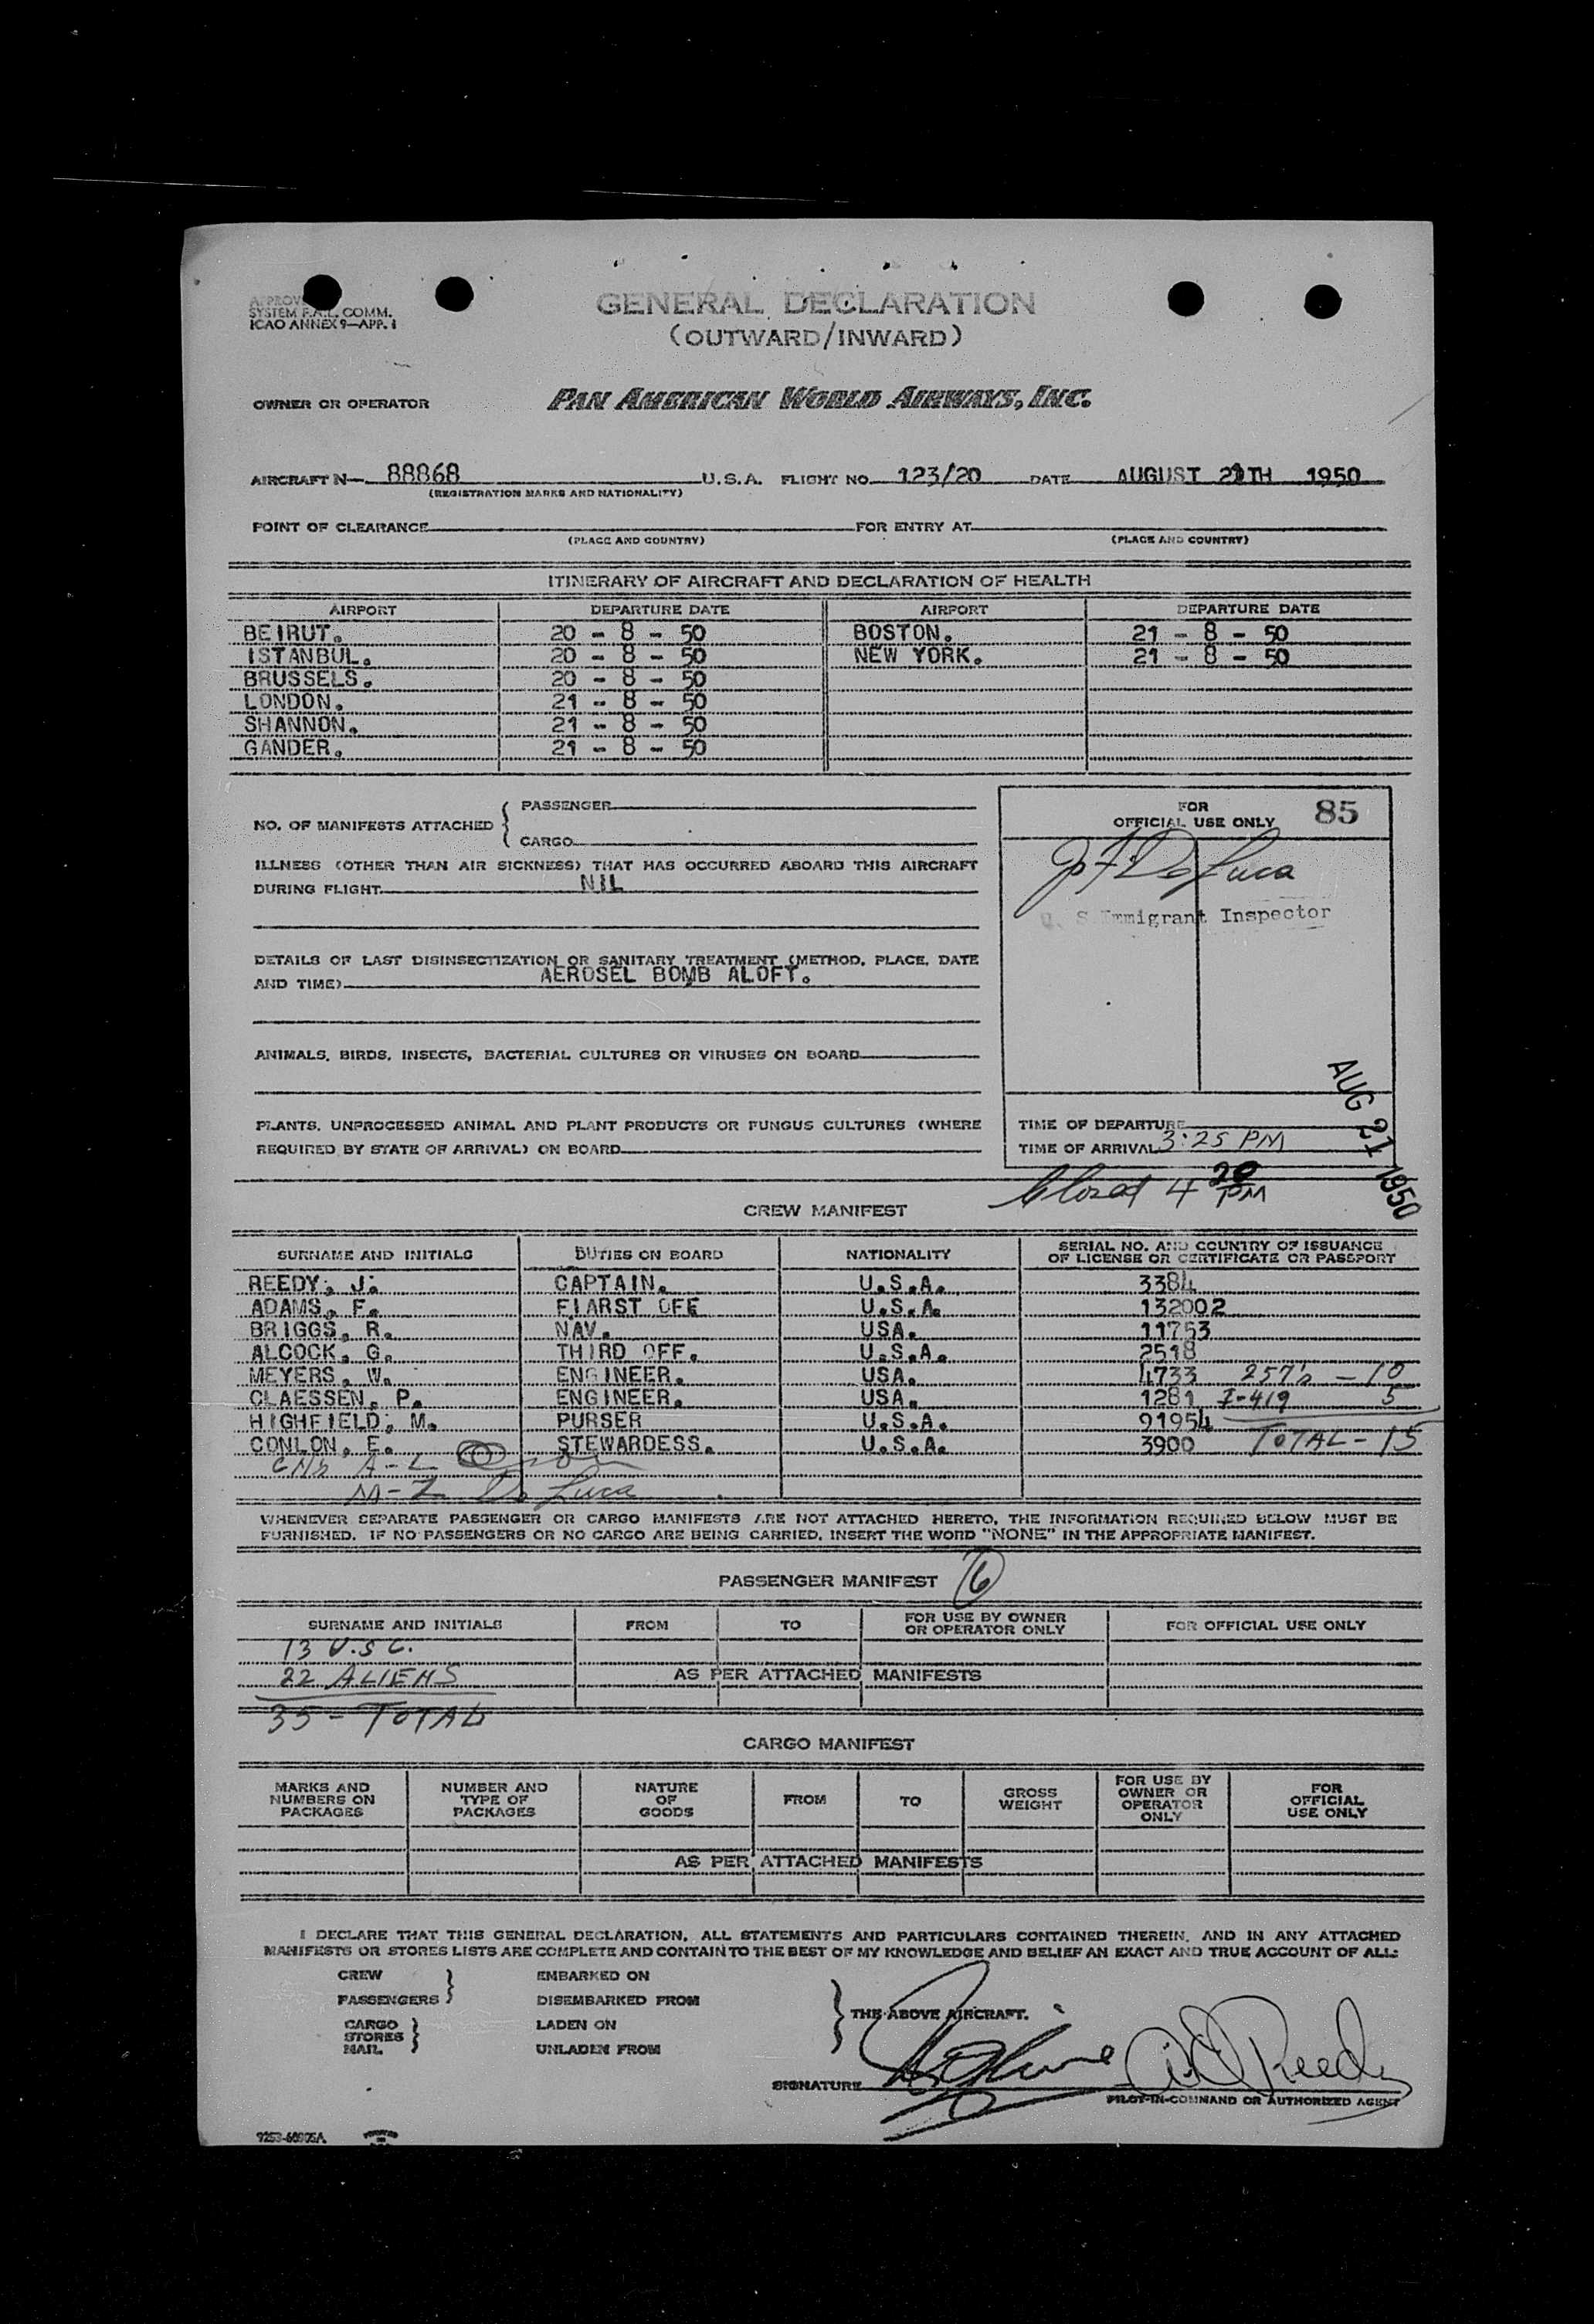 SYSTEM F.A.L. COMM.
ICAO ANNEX 9—APP. 1
GENERAL DECLARATION
(OUTWARD/INWARD)
OWNER OR OPERATOR PAN AMERICAN WORLD AIRWAYS, INC.
AIRCRAFT N— 88868 U.S.A. FLIGHT NO. 123/20 DATE AUGUST 21TH 1950
(REGISTRATION MARKS AND NATIONALITY)
POINT OF CLEARANCE FOR ENTRY AT
(PLACE AND COUNTRY) (PLACE AND COUNTRY)
ITINERARY OF AIRCRAFT AND DECLARATION OF HEALTH
AIRPORT DEPARTURE DATE AIRPORT DEPARTURE DATE
BEIRUT. 20 - 8 - 50 BOSTON. 21 - 8 - 50
ISTANBUL. 20 - 8 - 50 NEW YORK. 21 - 8 - 50
BRUSSELS. 20 - 8 - 50
LONDON. 21 - 8 - 50
SHANNON. 21 - 8 - 50
GANDER. 21 - 8 - 50
NO. OF MANIFESTS ATTACHED { PASSENGER
CARGO
FOR
OFFICIAL USE ONLY 85
J F De Luca
U. S Immigrant Inspector
ILLNESS (OTHER THAN AIR SICKNESS) THAT HAS OCCURRED ABOARD THIS AIRCRAFT
DURING FLIGHT NIL
DETAILS OF LAST DISINSECTIZATION OR SANITARY TREATMENT (METHOD, PLACE, DATE
AND TIME) AEROSEL BOMB ALOFT.
ANIMALS, BIRDS, INSECTS, BACTERIAL CULTURES OR VIRUSES ON BOARD
PLANTS, UNPROCESSED ANIMAL AND PLANT PRODUCTS OR FUNGUS CULTURES (WHERE
REQUIRED BY STATE OF ARRIVAL) ON BOARD
TIME OF DEPARTURE
TIME OF ARRIVAL 3:25 PM
AUG 21 1950
Closed 4 20 PM
CREW MANIFEST
SURNAME AND INITIALS DUTIES ON BOARD NATIONALITY SERIAL NO. AND COUNTRY OF ISSUANCE
OF LICENSE OR CERTIFICATE OR PASSPORT
REEDY, J. CAPTAIN. U.S.A. 3384
ADAMS, F. FIARST OFF U.S.A. 132002
BRIGGS, R. NAV. USA. 11753
ALCOCK, G. THIRD OFF. U.S.A. 2518
MEYERS, W. ENGINEER. USA. 4733 257's - 10
CLAESSEN, P. ENGINEER. USA. 1281 I-419 5
HIGHFIELD, M. PURSER U.S.A. 91954
CONLON, E. STEWARDESS. U.S.A. 3900 TOTAL - 15
A-L
M-Z De Luca
WHENEVER SEPARATE PASSENGER OR CARGO MANIFESTS ARE NOT ATTACHED HERETO, THE INFORMATION REQUIRED BELOW MUST BE
FURNISHED. IF NO PASSENGERS OR NO CARGO ARE BEING CARRIED, INSERT THE WORD "NONE" IN THE APPROPRIATE MANIFEST.
PASSENGER MANIFEST 6
SURNAME AND INITIALS FROM TO FOR USE BY OWNER
OR OPERATOR ONLY FOR OFFICIAL USE ONLY
13 U.S C.
22 ALIENS AS PER ATTACHED MANIFESTS
35 - TOTAL
CARGO MANIFEST
MARKS AND
NUMBERS ON
PACKAGES
NUMBER AND
TYPE OF
PACKAGES
NATURE
OF
GOODS
FROM
TO
GROSS
WEIGHT
FOR USE BY
OWNER OR
OPERATOR
ONLY
FOR
OFFICIAL
USE ONLY
AS PER ATTACHED MANIFESTS
I DECLARE THAT THIS GENERAL DECLARATION, ALL STATEMENTS AND PARTICULARS CONTAINED THEREIN, AND IN ANY ATTACHED
MANIFESTS OR STORES LISTS ARE COMPLETE AND CONTAIN TO THE BEST OF MY KNOWLEDGE AND BELIEF AN EXACT AND TRUE ACCOUNT OF ALL:
CREW EMBARKED ON
PASSENGERS DISEMBARKED FROM
THE ABOVE AIRCRAFT.
CARGO LADEN ON
STORES
MAIL UNLADEN FROM
SIGNATURE Reedy
PILOT-IN-COMMAND OR AUTHORIZED AGENT